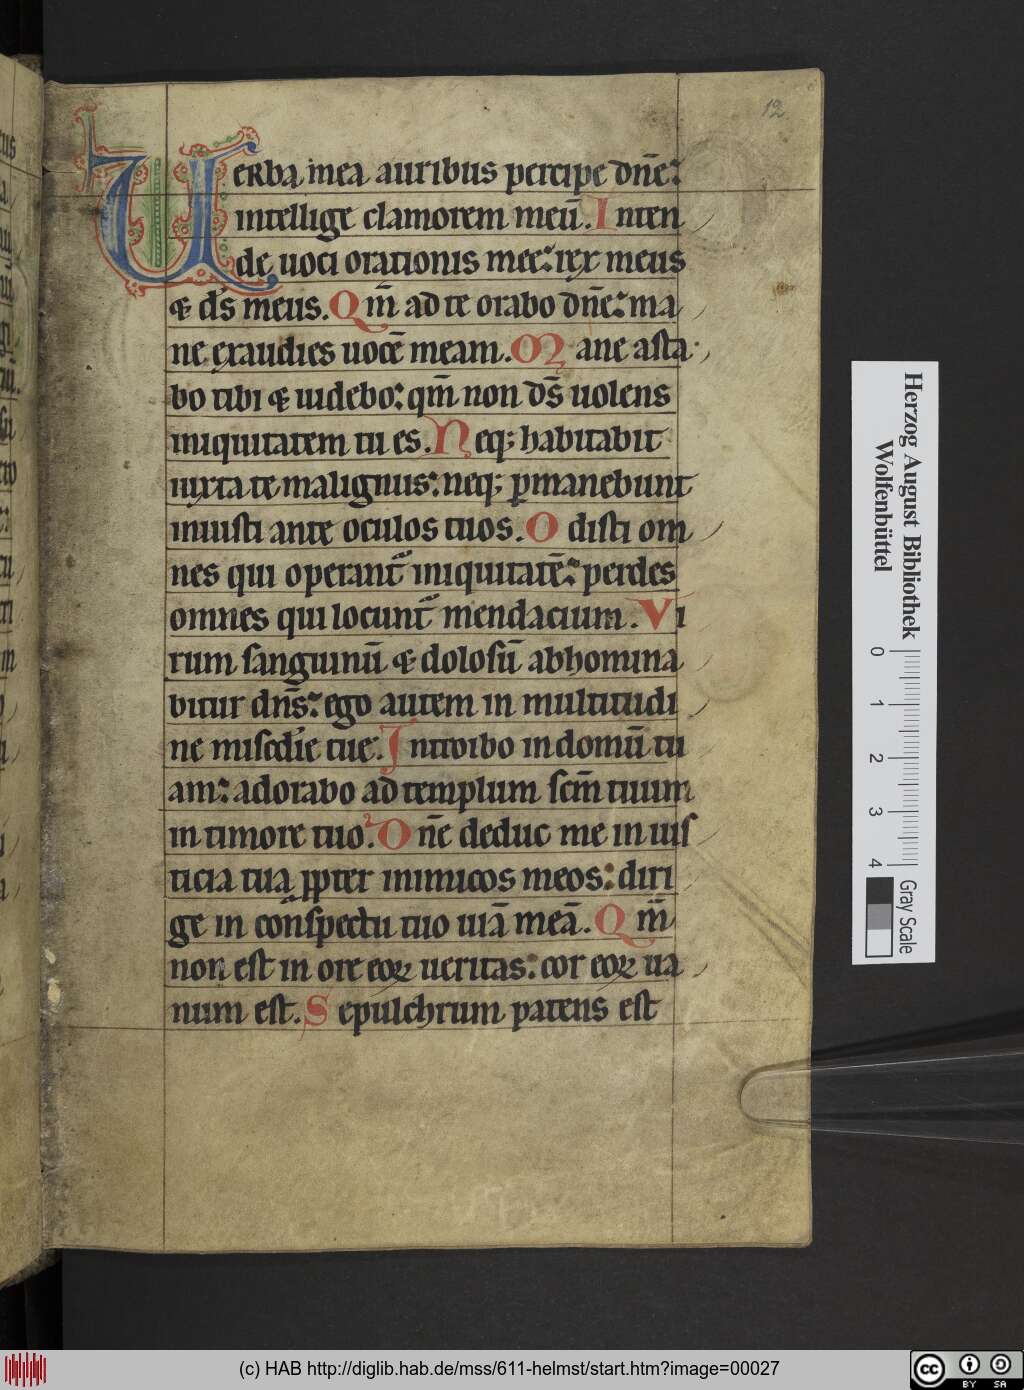 12
Uerba mea auribus percipe dn̄e:
intellige clamorem meū. Inten
de uoci orationis mee: rex meus
& ds̄ meus. Qm̄ ad te orabo dn̄e: ma
ne exaudies uocē meam. Mane asta
bo tibi & uidebo: qm̄ non ds̄ uolens
iniquitatem tu es. Neq; habitabit
iuxta te malignus: neq; ꝑmanebunt
iniusti ante oculos tuos. Odisti om
nes qui operant᷑ iniquitatē: perdes
omnes qui locunt᷑ mendacium. Vi
rum sanguinū & dolosū abhomina
bitur dn̄s: ego autem in multitudi
ne misc̄die tue. Introibo in domū tu
am: adorabo ad templum scm̄ tuum
in timore tuo. Dn̄e deduc me in ius
ticia tua ꝓpter inimicos meos: diri
ge in conspectu tuo uiā meā. Qm̄
non est in ore eoꝝ ueritas: cor eoꝝ ua
num est. Sepulchrum patens est
Herzog August Bibliothek
Wolfenbüttel
0 1 2 3 4
Gray Scale
(c) HAB http://diglib.hab.de/mss/611-helmst/start.htm?image=00027
cc BY SA